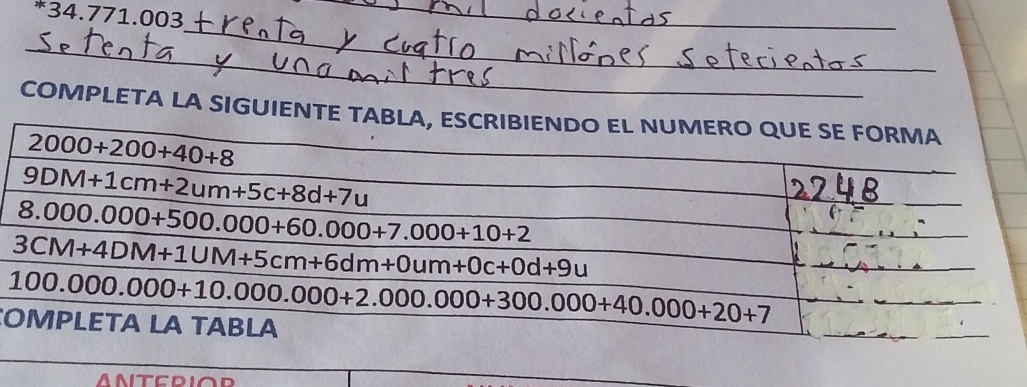 mil docientos
*34.771.003 trenta y cuatro millónes setecientos
setenta y una mil tres
COMPLETA LA SIGUIENTE TABLA, ESCRIBIENDO EL NUMERO QUE SE FORMA
2000+200+40+8 2248
9DM+1cm+2um+5c+8d+7u
8.000.000+500.000+60.000+7.000+10+2
3CM+4DM+1UM+5cm+6dm+0um+0c+0d+9u
100.000.000+10.000.000+2.000.000+300.000+40.000+20+7
COMPLETA LA TABLA
ANTERIOR